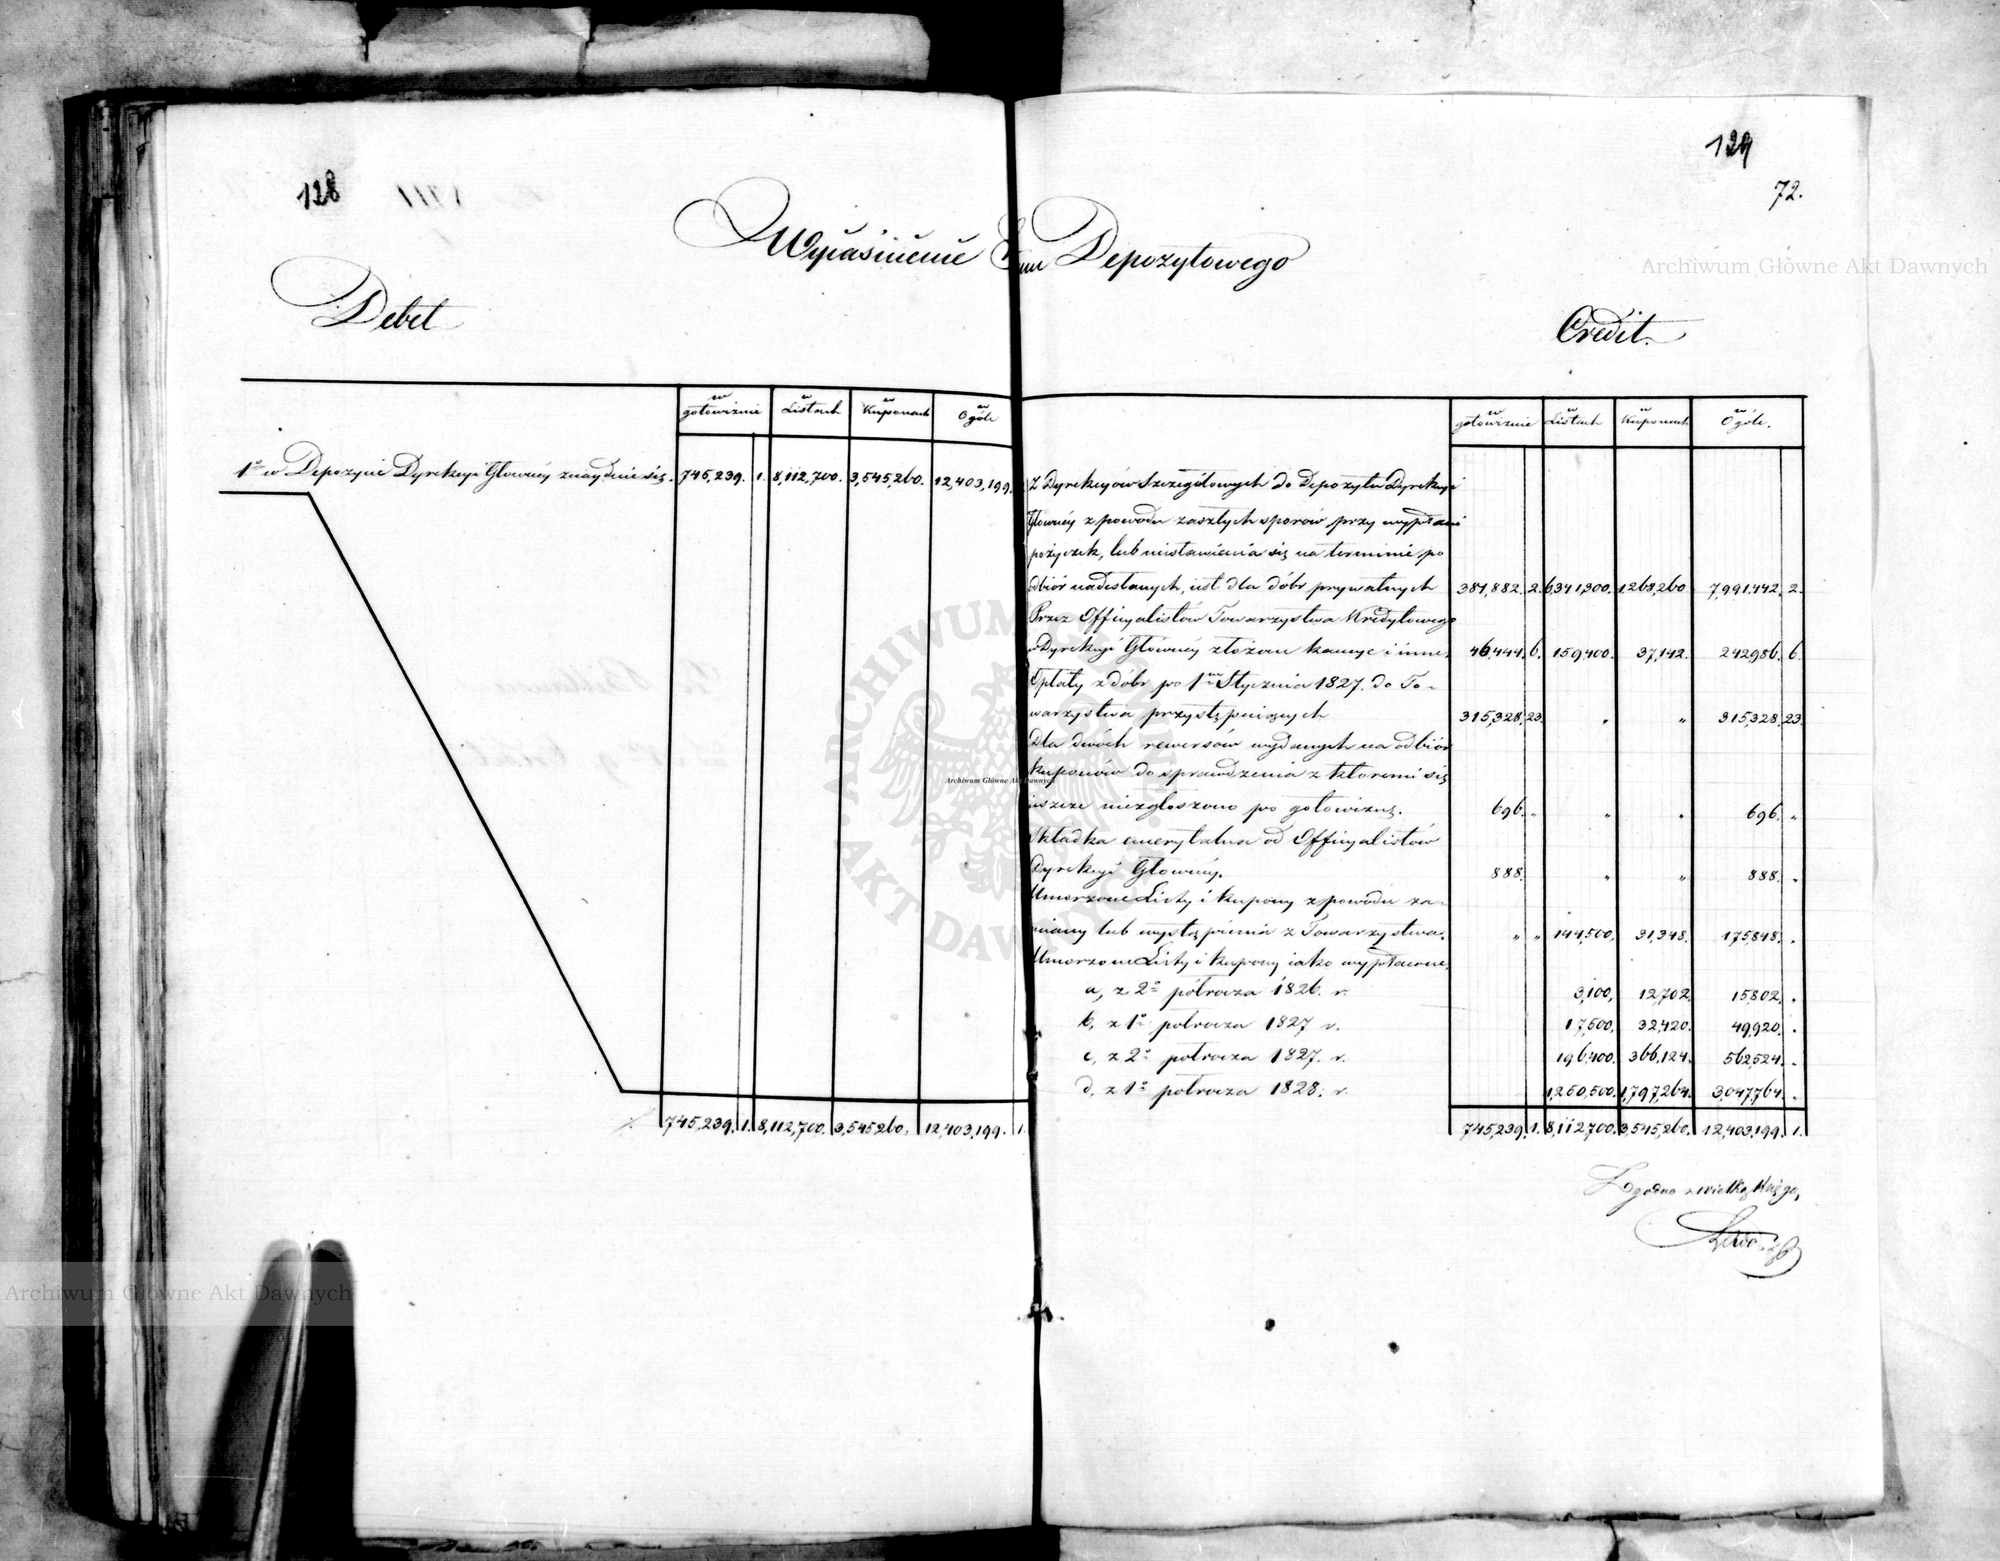 128
Wyiaśnienie
Debet
w gotowiznie w Listach w Kuponach w Ogóle
1º w Depozycie Dyrekcyi Głowney znayduie się. 745,239. 1. 8,112,700. 3,545,260. 12,403,199.
745,239. 1. 8,112,700. 3,545,260. 12,403,199. 1.
129
72.
Depozytowego
Credit.
w gotowiznie w Listach w Kuponach w Ogóle.
Z Dyrekcyów Szczegółowych do Depozytu Dyrekcyi
Głowney z powodu zaszłych sporów przy wypłacie
pożyczek, lub niestawienia się na terminie po
odbiór nadesłanych, iest dla dóbr prywatnych 381,882. 2. 6,341,300. 1,268,260 7,991,442. 2.
Przez Officyalistów Towarzystwa Kredytowego
w Dyrekcyi Głowney złożone kaucye i inne. 46,444. 6. 159,400. 37,142. 242,986. 6.
Opłaty z dóbr po 1m Stycznia 1827. do To-
warzystwa przystępuiących 315,328. 23. " " 315,328. 23.
Dla dwóch rewersów wydanych na odbiór
kuponów do sprawdzenia z któremi się
ieszcze niezgłoszono po gotowiznę. 696. " " " 696. "
Składka emerytalna od Officyalistów
Dyrekcyi Głowney. 888. " " 888. "
Umorzone Listy i kupony z powodu za-
miany lub wystąpienia z Towarzystwa. " " 144,500. 31,348. 175,848. "
Umorzone Listy i kupony iako wypłacone,
a, z 2º półrocza 1826. r. 3,100, 12,702. 15,802. "
b, z 1º półrocza 1827 r. 17,500, 32,420. 49,920. "
c, z 2º półrocza 1827. r. 196,400. 366,124. 562,524. "
d, z 1º półrocza 1828. r. 1,250,500. 1,797,264. 3,047,764. "
745,239. 1. 8,112,700. 3,545,260. 12,403,199. 1.
Zgodno z wielką Księgą,
Archiwum Główne Akt Dawnych
Archiwum Główne Akt Dawnych
Archiwum Główne Akt Dawnych
ARCHIWUM GŁÓWNE AKT DAWNYCH